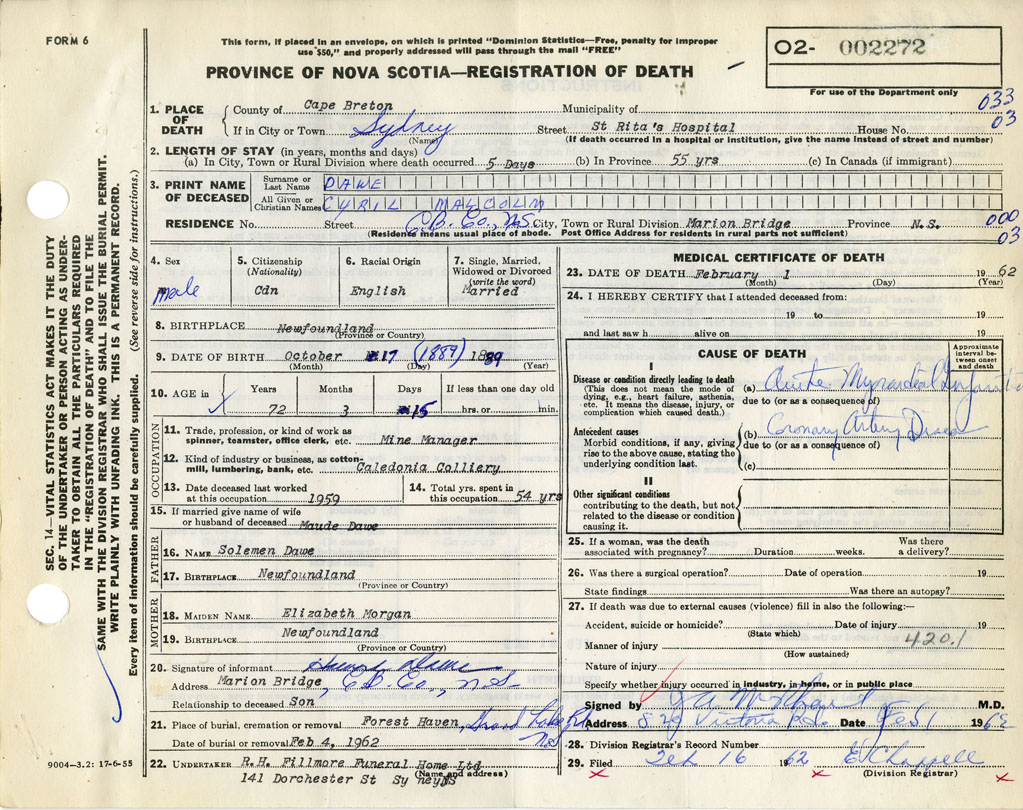 FORM 6
This form, if placed in an envelope, on which is printed "Dominion Statistics—Free, penalty for improper
use $50," and properly addressed will pass through the mail "FREE"
PROVINCE OF NOVA SCOTIA—REGISTRATION OF DEATH
O2- 002272
For use of the Department only
033
03
1. PLACE OF DEATH
County of Cape Breton Municipality of
If in City or Town Sydney Street St Rita's Hospital House No.
(Name) (If death occurred in a hospital or institution, give the name instead of street and number)
2. LENGTH OF STAY (in years, months and days)
(a) In City, Town or Rural Division where death occurred 5 Days (b) In Province 55 yrs (c) In Canada (if immigrant)
3. PRINT NAME OF DECEASED
Surname or Last Name DAWE
All Given or Christian Names CYRIL MALCOLM
RESIDENCE No. Street C.B. Co., N.S. City, Town or Rural Division Marion Bridge Province N.S.
(Residence means usual place of abode. Post Office Address for residents in rural parts not sufficient)
000
03
4. Sex male
5. Citizenship (Nationality) Cdn
6. Racial Origin English
7. Single, Married, Widowed or Divorced (write the word) Married
8. BIRTHPLACE Newfoundland
(Province or Country)
9. DATE OF BIRTH October 17 (1889) 1889
(Month) (Day) (Year)
10. AGE in Years Months Days If less than one day old
72 3 15 hrs. or min.
OCCUPATION
11. Trade, profession, or kind of work as
spinner, teamster, office clerk, etc. Mine Manager
12. Kind of industry or business, as cotton-
mill, lumbering, bank, etc. Caledonia Colliery
13. Date deceased last worked
at this occupation 1959
14. Total yrs. spent in
this occupation 54 yrs
15. If married give name of wife
or husband of deceased Maude Dawe
FATHER
16. NAME Solemen Dawe
17. BIRTHPLACE Newfoundland
(Province or Country)
MOTHER
18. MAIDEN NAME. Elizabeth Morgan
19. BIRTHPLACE Newfoundland
(Province or Country)
20. Signature of informant
Address Marion Bridge, C.B. Co., N.S
Relationship to deceased Son
21. Place of burial, cremation or removal Forest Haven, Grand Lake Rd
N.S
Date of burial or removal Feb 4, 1962
22. UNDERTAKER R.H. Fillmore Funeral Home Ltd
(Name and address)
141 Dorchester St Sy ney NS
MEDICAL CERTIFICATE OF DEATH
23. DATE OF DEATH February 1 1962
(Month) (Day) (Year)
24. I HEREBY CERTIFY that I attended deceased from:
19 to 19
and last saw h alive on 19
CAUSE OF DEATH
Approximate interval be-tween onset and death
I
Disease or condition directly leading to death
(This does not mean the mode of
dying, e.g., heart failure, asthenia,
etc. It means the disease, injury, or
complication which caused death.)
(a) Acute Myocardial Infarct
due to (or as a consequence of)
Antecedent causes
Morbid conditions, if any, giving
rise to the above cause, stating the
underlying condition last.
(b) Coronary Artery Disease
due to (or as a consequence of)
(c)
II
Other significant conditions
contributing to the death, but not
related to the disease or condition
causing it.
25. If a woman, was the death
associated with pregnancy? Duration weeks. Was there
a delivery?
26. Was there a surgical operation? Date of operation 19
State findings Was there an autopsy?
27. If death was due to external causes (violence) fill in also the following:—
Accident, suicide or homicide? Date of injury 19
(State which)
Manner of injury 420.1
(How sustained)
Nature of injury
Specify whether injury occurred in industry, in home, or in public place
Signed by M.D.
Address 829 Victoria Rd. Date Feb 1 1962
28. Division Registrar's Record Number
29. Filed Feb 16 1962 E Chappell
(Division Registrar)
SEC. 14—VITAL STATISTICS ACT MAKES IT THE DUTY
OF THE UNDERTAKER OR PERSON ACTING AS UNDER-
TAKER TO OBTAIN ALL THE PARTICULARS REQUIRED
IN THE "REGISTRATION OF DEATH" AND TO FILE THE
SAME WITH THE DIVISION REGISTRAR WHO SHALL ISSUE THE BURIAL PERMIT.
WRITE PLAINLY WITH UNFADING INK. THIS IS A PERMANENT RECORD.
Every item of information should be carefully supplied. (See reverse side for instructions.)
9004-3.2: 17-6-55